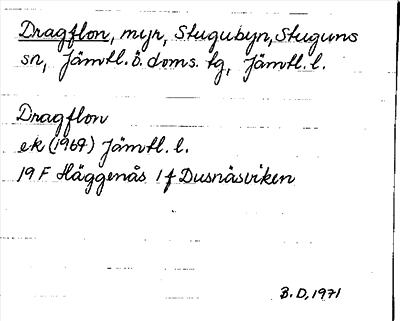 Dragflon, myr, Stugubyn, Stuguns
sn, Jämtl.ö. doms. tg, Jämtl.l.
Dragflon
ek (1967) Jämtl.l.
19F Häggenås 1f Dusnäsviken
B.D, 1971